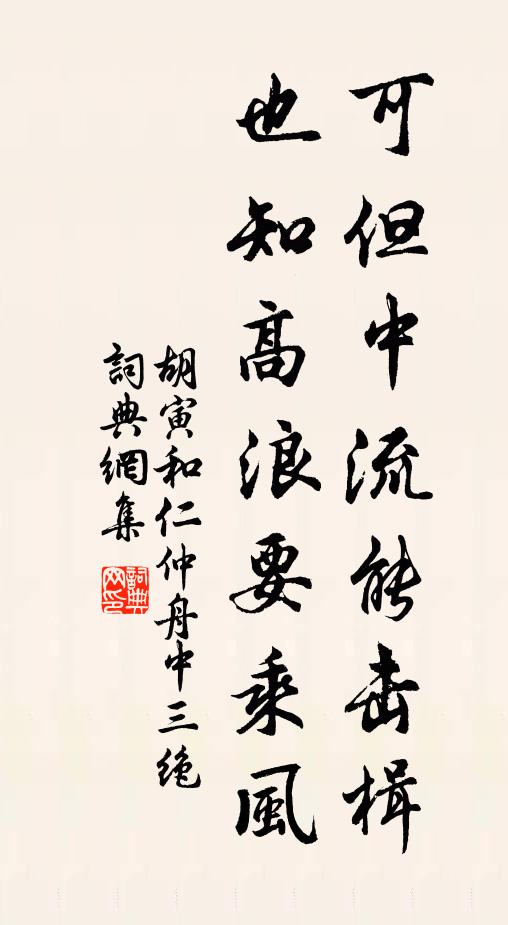 可但中流能击楫
也知高浪要乘風
胡寅和仁仲舟中三绝
詞典網集
詞典网印